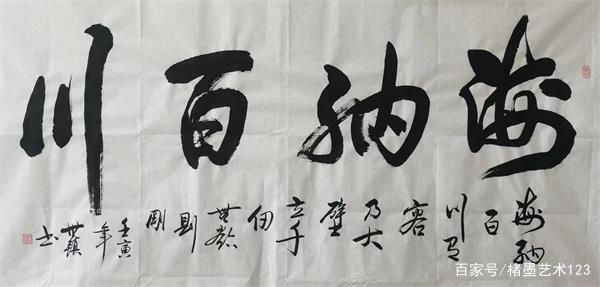 海纳百川
海纳百川有容乃大壁立千仞無欲則剛
壬寅年世镇书
百家号/楮墨艺术123